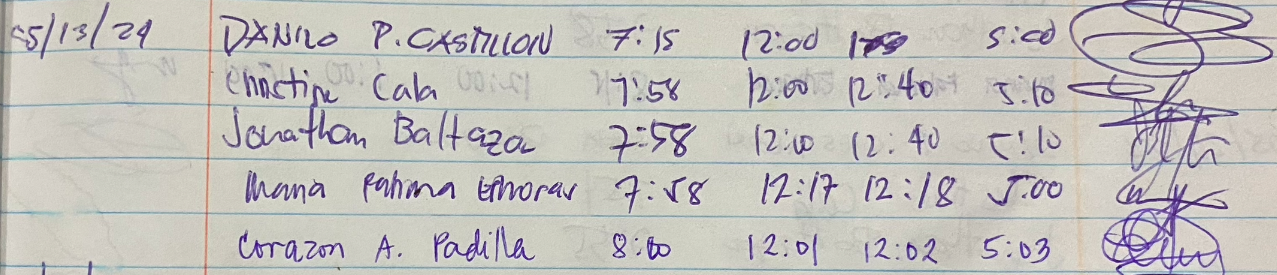 5/13/24 DANILO P. CASTILLON 7:15 12:00 1:00 5:00
Christine Cala 7:58 12:00 12:40 5:10
Jonathan Baltaza 7:58 12:00 12:40 5:10
Maria Fatima 7:58 12:17 12:18 5:00
Corazon A. Padilla 8:00 12:01 12:02 5:03